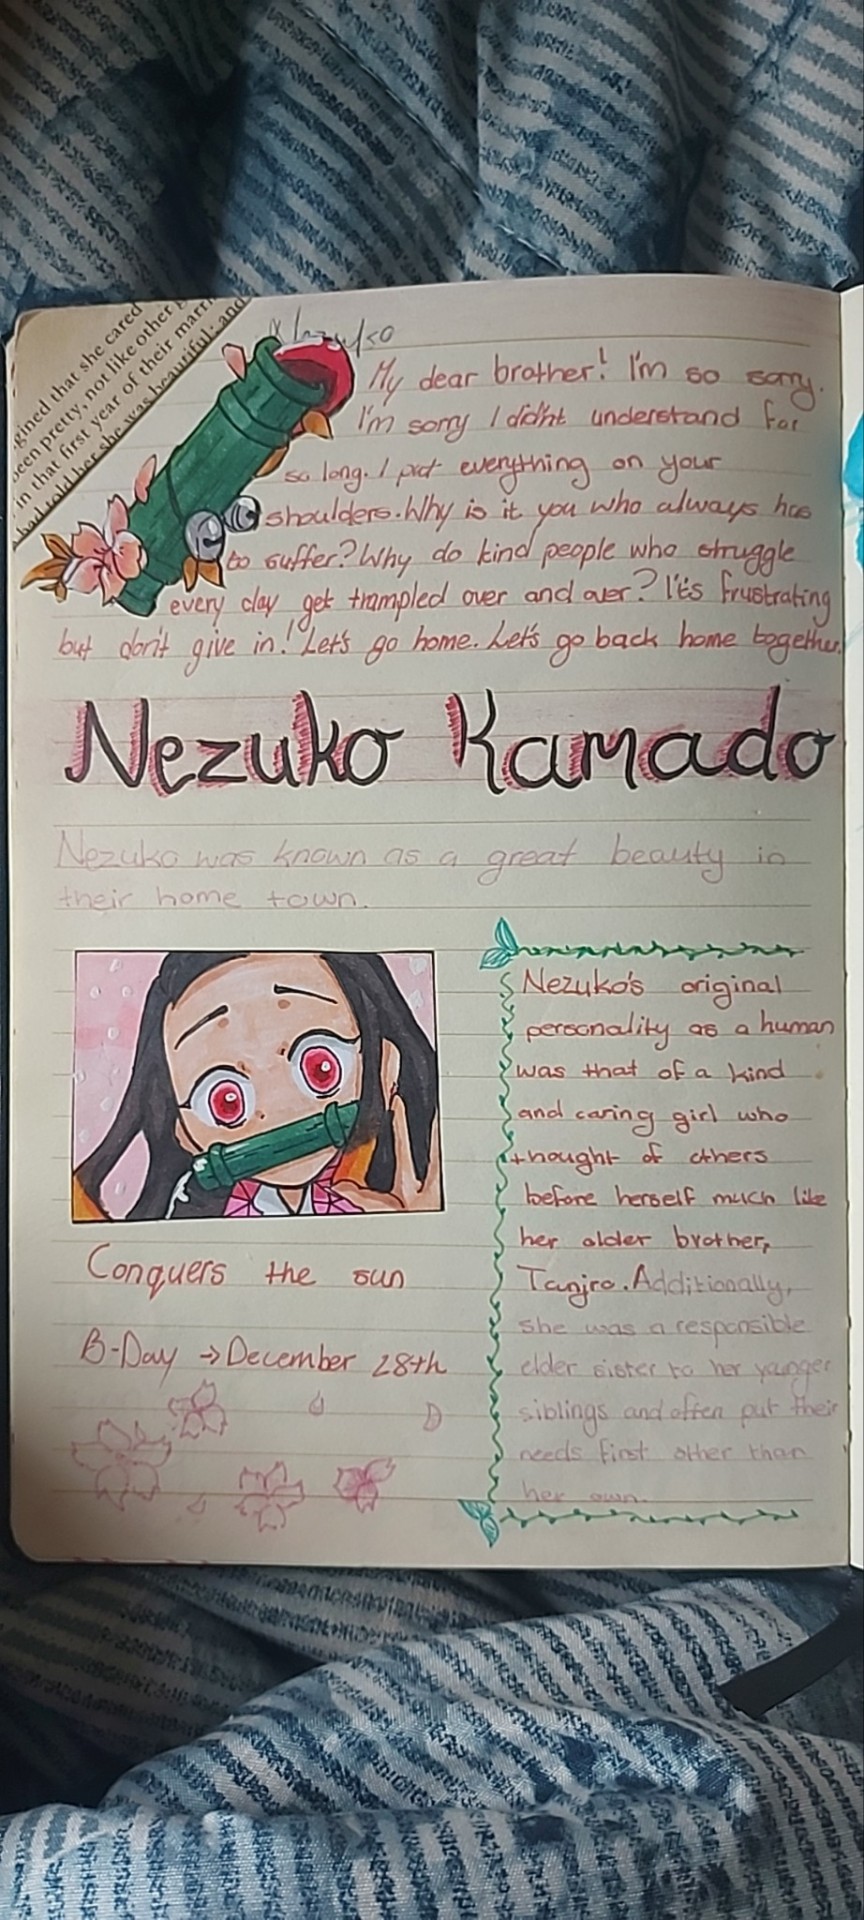 gined that she cared
been pretty, not like other
in that first year of their marri
had told her she was beautiful; and
Nezuko
My dear brother! I'm so sorry.
I'm sorry I didn't understand for
so long. I put everything on your
shoulders. Why is it you who always has
to suffer? Why do kind people who struggle
every day get trampled over and over? It's frustrating
but don't give in! Let's go home. Let's go back home together.
Nezuko Kamado
Nezuko was known as a great beauty in
their home town.
Nezuko's original
personality as a human
was that of a kind
and caring girl who
thought of others
before herself much like
her older brother,
Tanjro. Additionally,
she was a responsible
elder sister to her younger
siblings and often put their
needs first other than
her own.
Conquers the sun
B-Day → December 28th